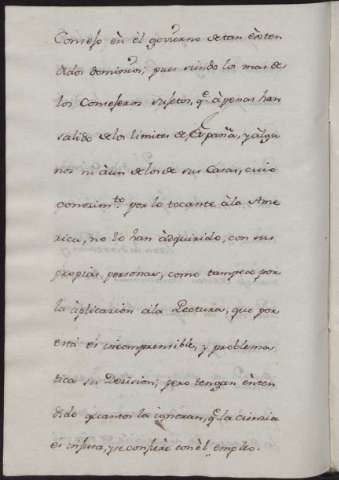 Consejo en el govierno de tan exten
didos dominios, pues siendo los mas de
los Consejeros sujetos, q.e àpenas han
salido de los limites de España, y algu
nos ni àun de los de sus Casas, cuio
conocim.to por lo tocante àla Ame
rica, no lo han àdquirido, con sus
propias personas, como tampoco por
la àplicacion àla Lectura, que por
esta es incomprensible, y problema
tica su Decision; pero tengan enten
dido quantos la ignoran, q.e la ciencia
es infusa, y se confiere con èl empleo.